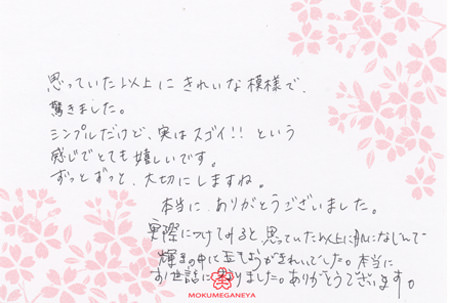 思っていた以上にきれいな模様で、
驚きました。
シンプルだけど、実はスゴイ!! という
感じでとても嬉しいです。
ずっとずっと、大切にしますね。
本当に、ありがとうございました。
実際につけてみると思っていた以上に肌になじんで
輝きの中に きれいでした。本当に
お世話になりました。ありがとうございます。
MOKUMEGANEYA